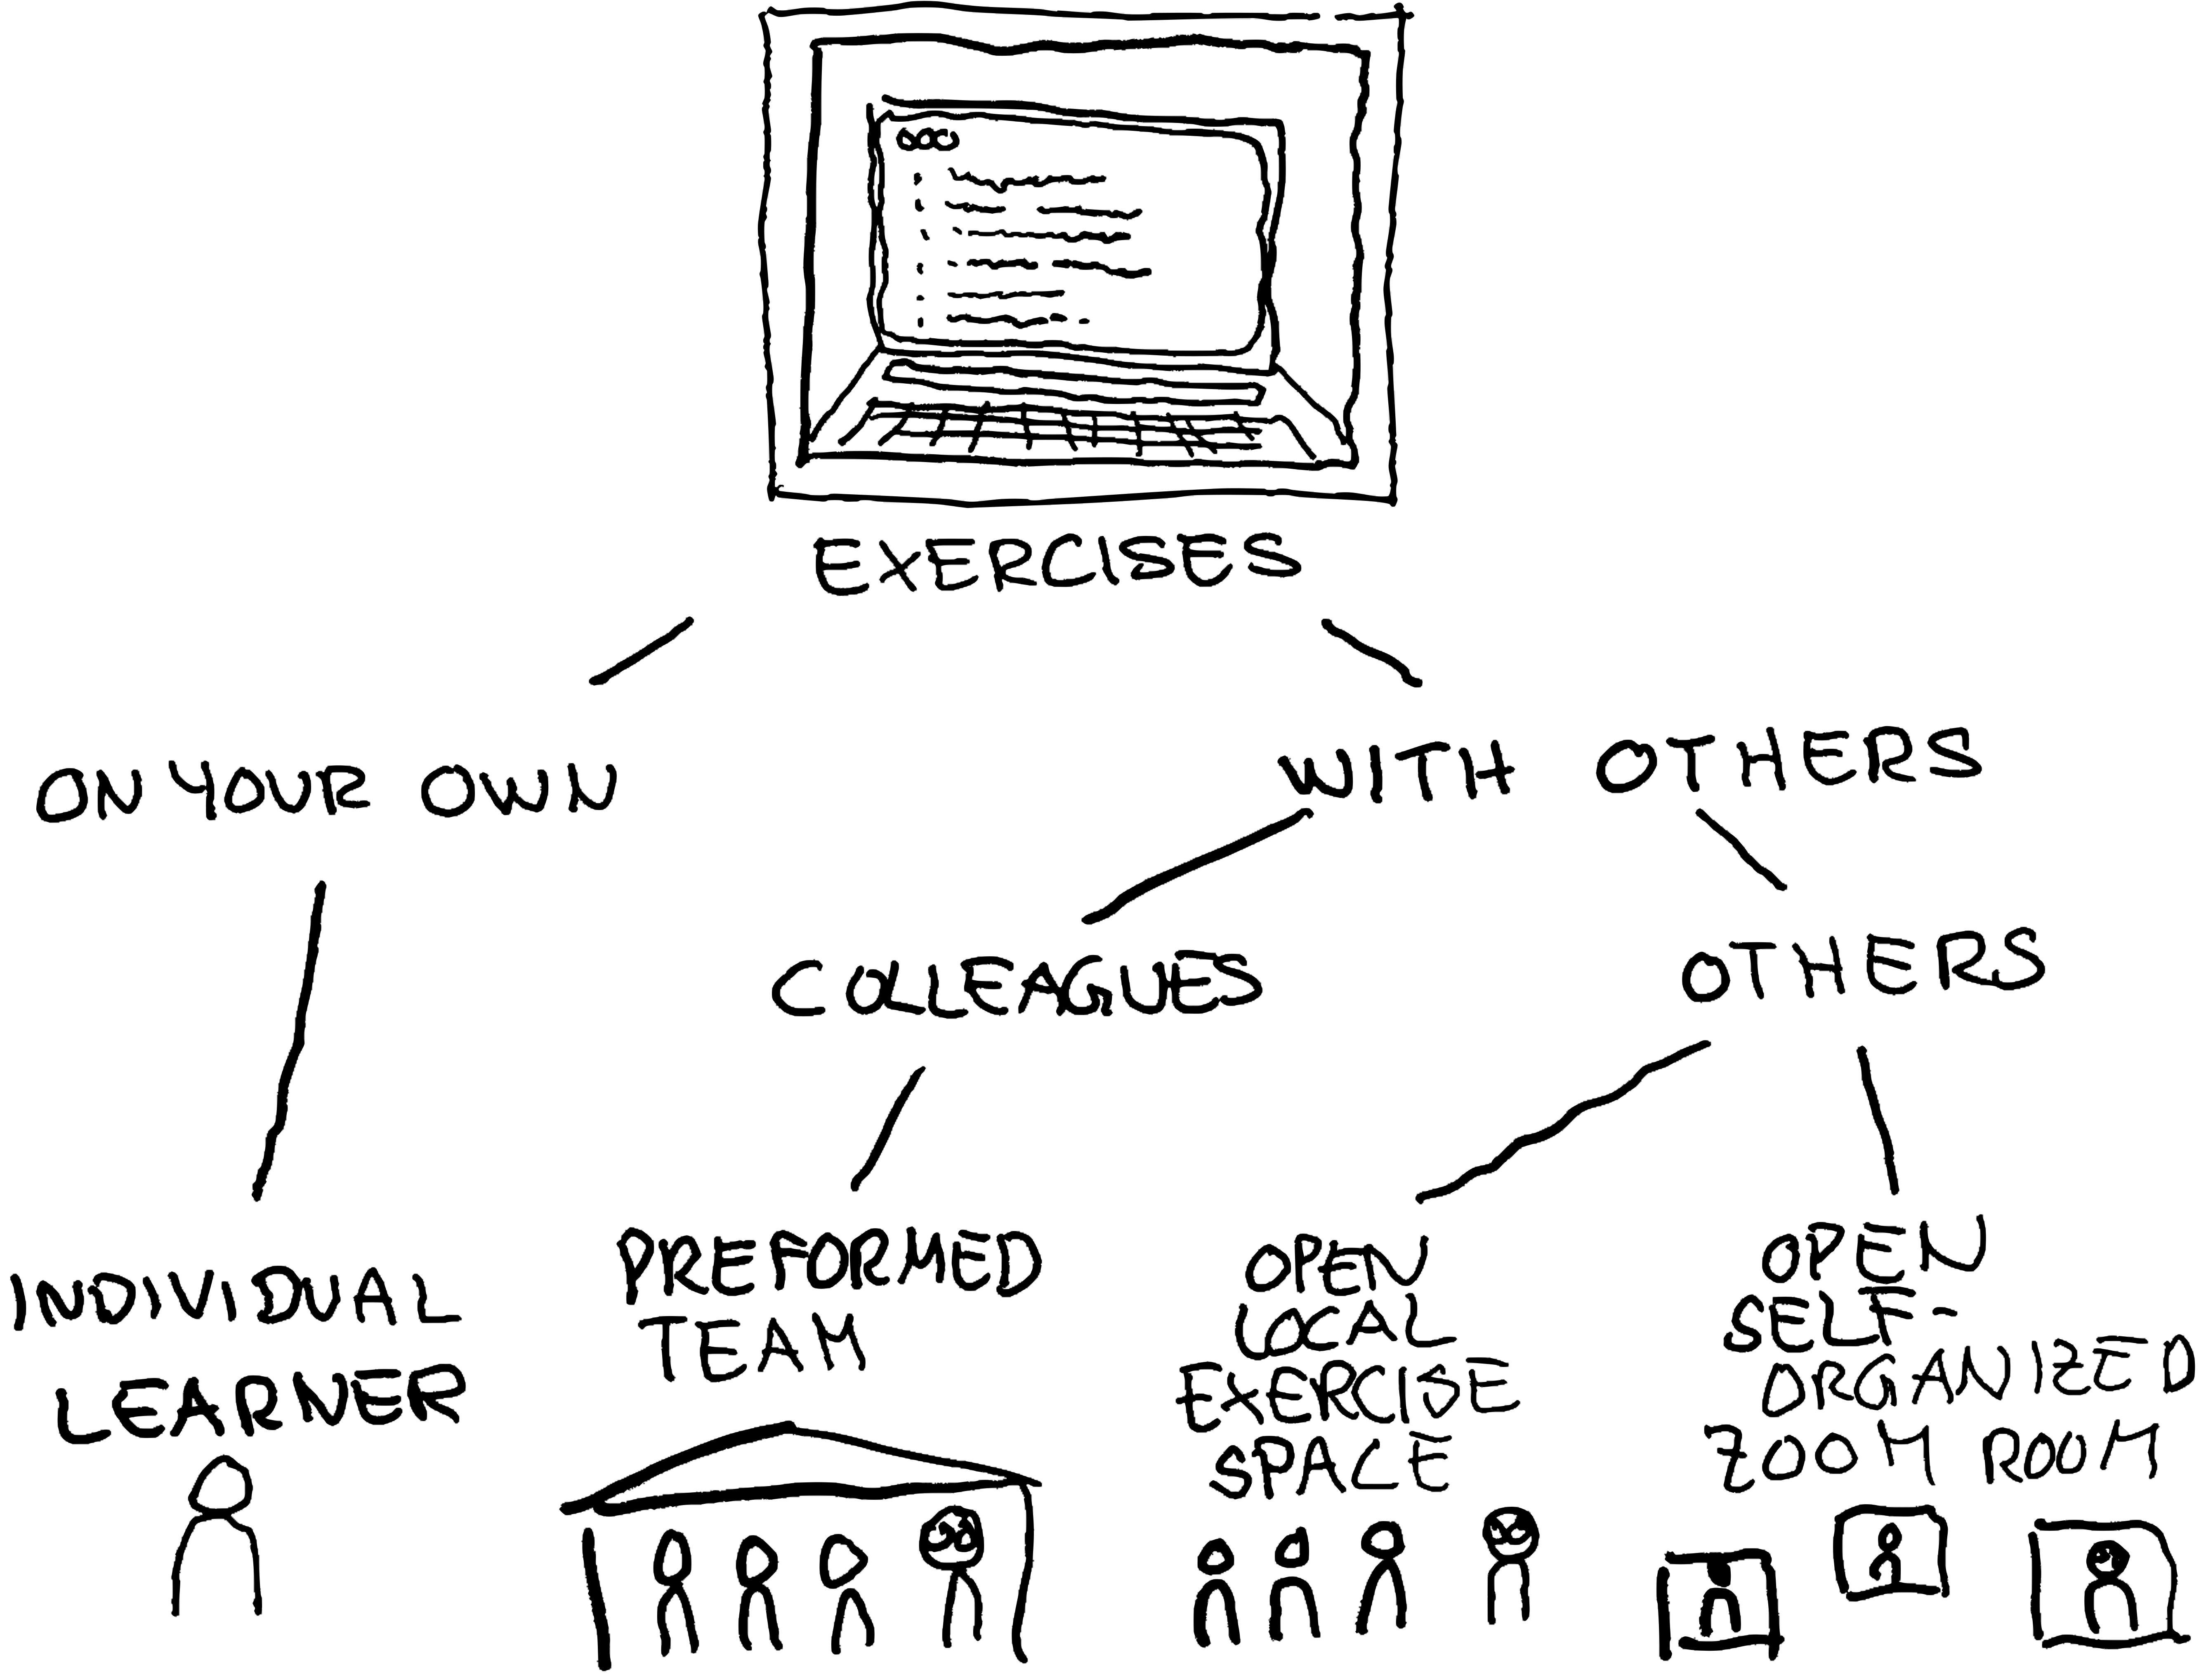 EXERCISES
ON YOUR OWN
WITH OTHERS
COLLEAGUES
OTHERS
INDIVIDUAL
LEARNER
PREFORMED
TEAM
OPEN
LOCAL
EXERCISE
SPACE
OPEN
SELF-
ORGANIZED
ZOOM ROOM